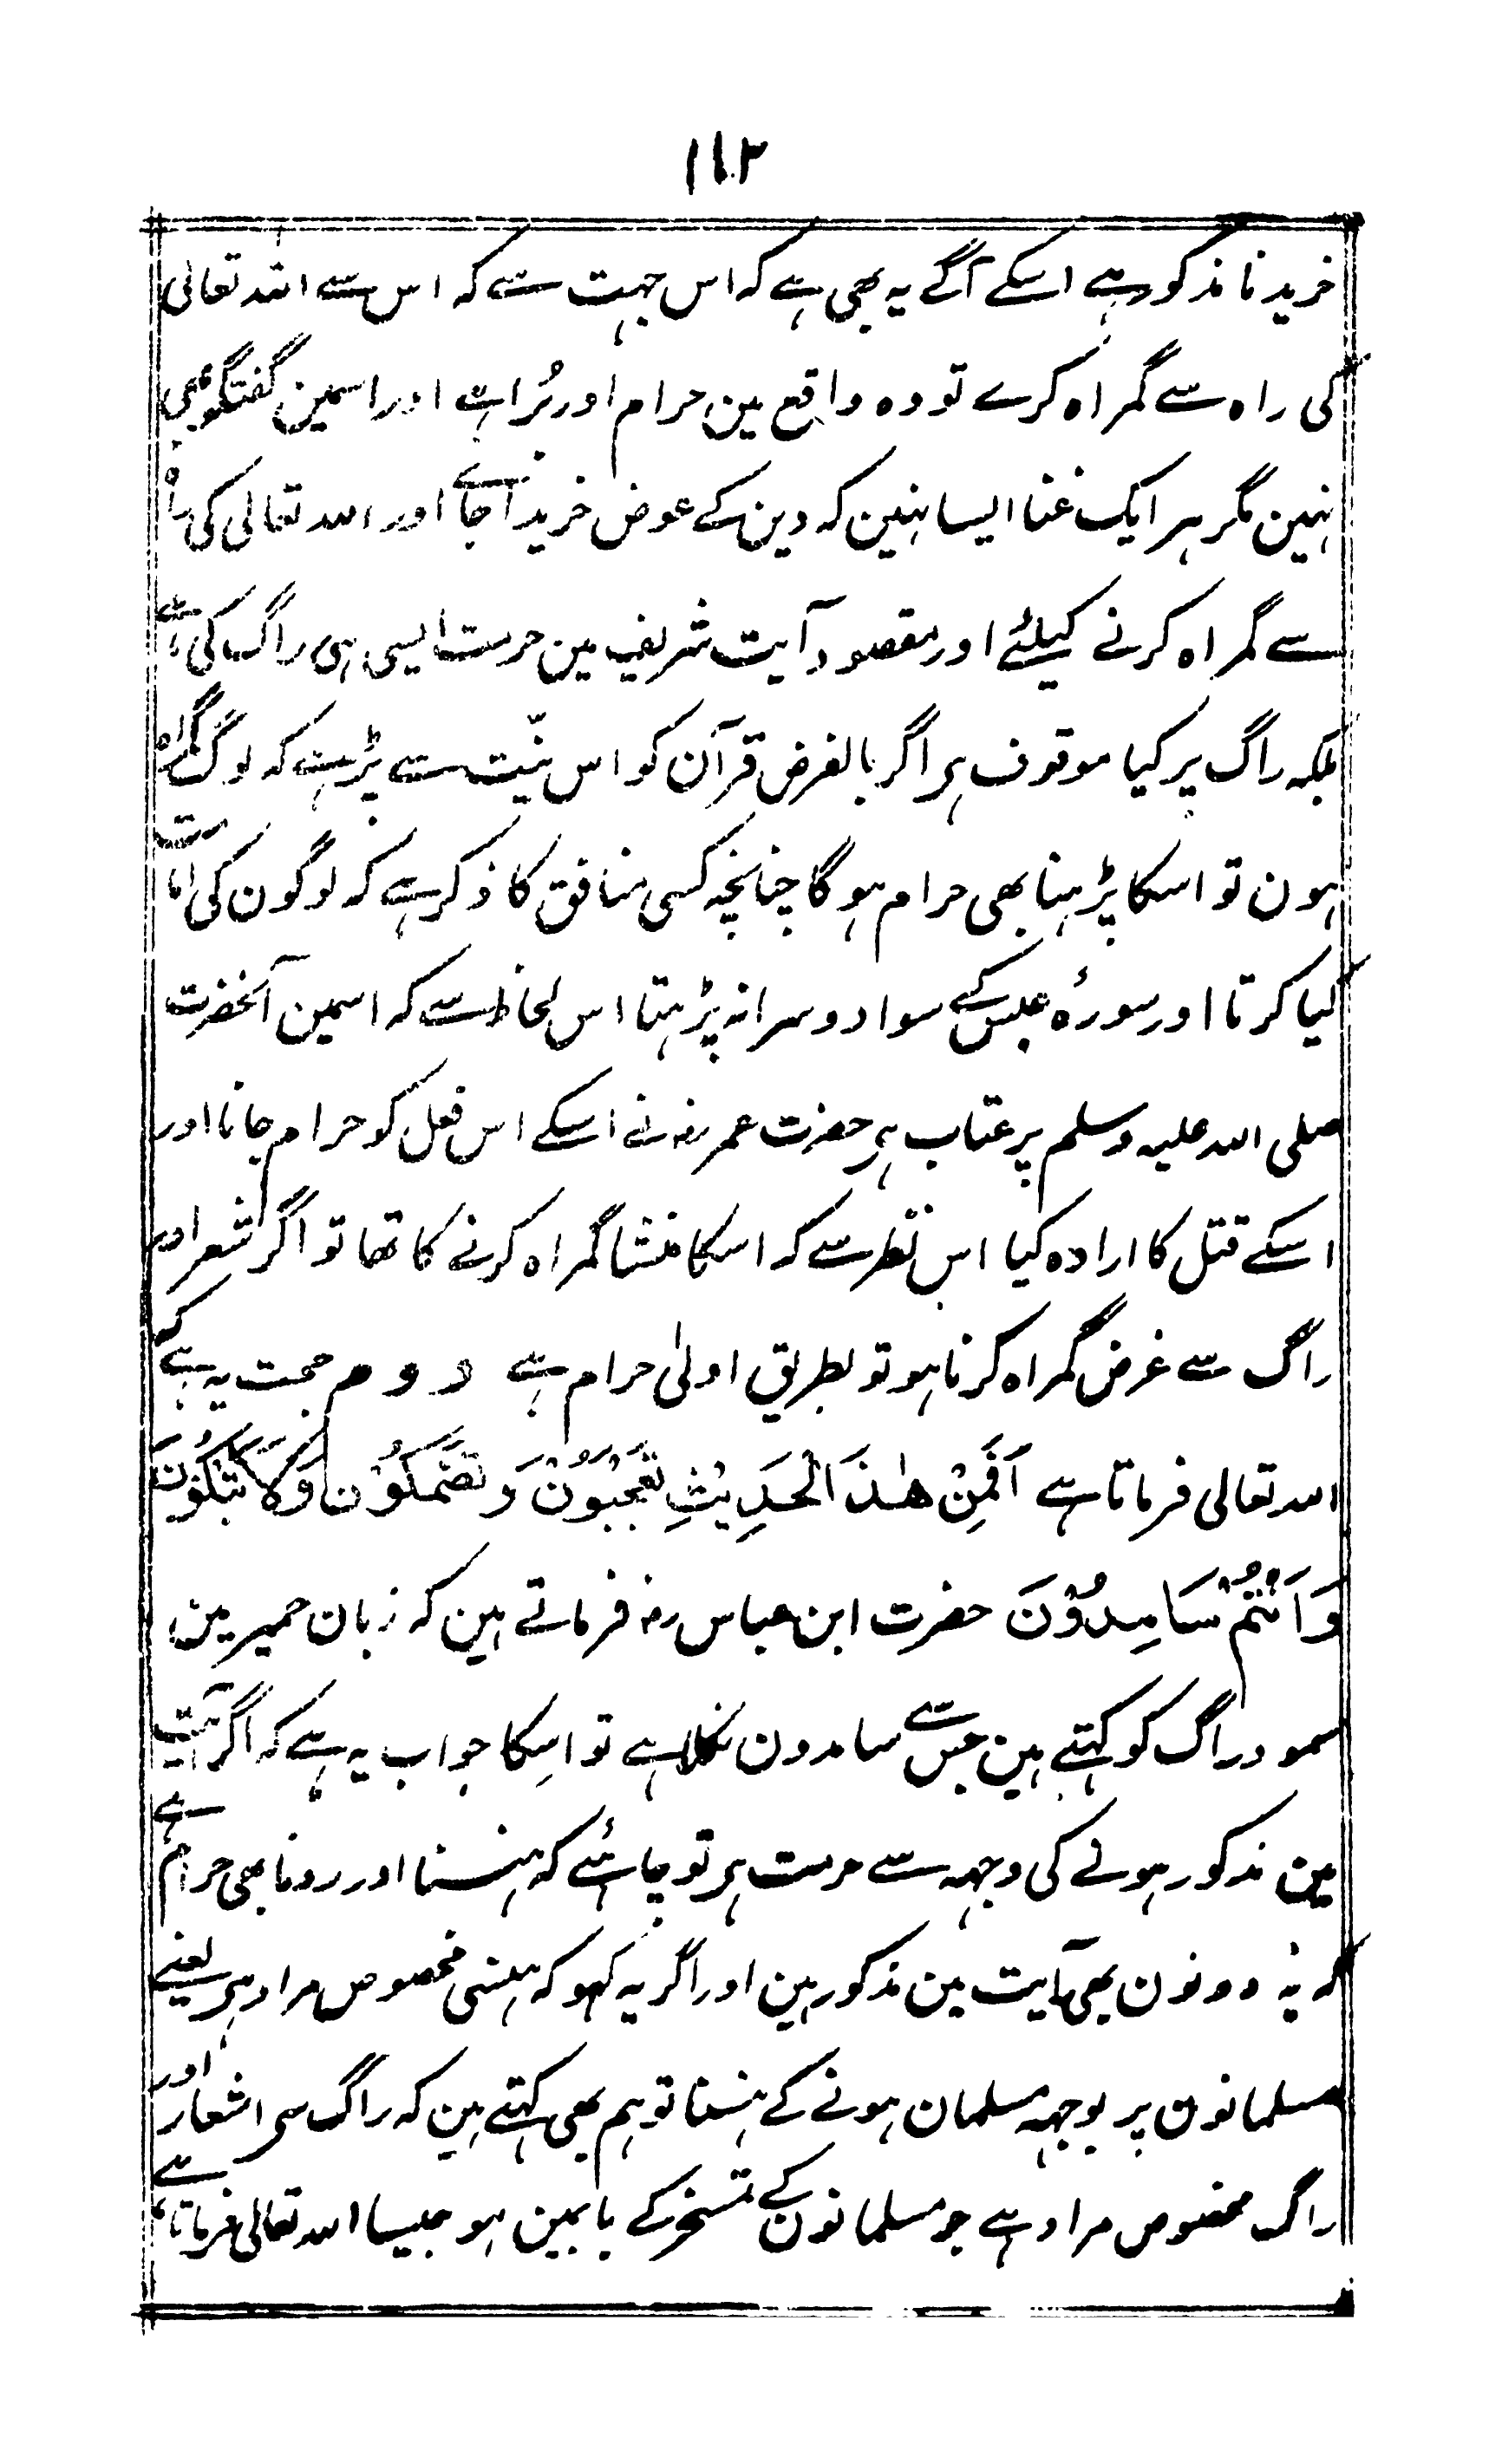 ۱۱۲
خریدنا مذکور ہے اسکے آگے یہ بھی ہے کہ اس جہت سے کہ اس سے اللہ تعالی
کی راہ سے گمراہ کرے تو وہ واقع مین حرام اور بُرا ہے اور اسمین گفتگو بھی
نہین مگر ہر ایک غنا ایسا نہین کہ دین کے عوض خریدا جائے اور اللہ تعالی کی راہ
سے گمراہ کرنے کیلئے اور مقصود آیت شریف مین حرمت ایسی ہی راگ کی ہے
بلکہ راگ پر کیا موقوف ہی اگر بالفرض قرآن کو اس نیّت سے پڑہے کہ لوگ گمراہ
ہون تو اسکا پڑہنا بھی حرام ہو گا چنانچہ کسی منافق کا ذکر ہے کہ لوگون کی امامت
کیا کرتا اور سورۂ عبس کے سوا دوسرا نہ پڑہتا اس لحاظ سے کہ اسمین آنحضرت
صلی اللہ علیہ وسلم پر عتاب ہی حضرت عمر رضہ نے اسکے اس فعل کو حرام جانا اور
اسکے قتل کا ارادہ کیا اس نظر سے کہ اسکا منشا گمراہ کرنے کا تھا تو اگر شعر اور
راگ سے غرض گمراہ کرنا ہو تو بطریق اولیٰ حرام ہے دوم حجت یہ ہے کہ
اللہ تعالی فرماتا ہے اَفَمِنْ هٰذَا الْحَدِيْثِ تَعْجَبُوْنَ وَ تَضْحَكُوْنَ وَلَا تَبْكُوْنَ
وَاَنْتُمْ سَامِدُوْنَ حضرت ابن عباس رضہ فرماتے ہین کہ زبان حمیر مین
سمود راگ کو کہتے ہین جس سے سامدون نکلا ہے تو اسِکا جواب یہ ہے کہ اگر آیت
مین مذکور ہونے کی وجہہ سے حرمت ہی تو چاہئے کہ ہنسنا اور رونا بھی حرام ہے
کہ یہ دونون بھی آیت مین مذکور ہین اور اگر یہ کہو کہ ہنسی مخصوص مراد ہی یعنے
مسلمانون پر بوجہہ مسلمان ہونے کے ہنسنا تو ہم بھی کہتے ہین کہ راگ سی اشعار اور
راگ مخصوص مراد ہے جو مسلمانون کے تمسخر کے بابمین ہو جیسا اللہ تعالی فرماتا ہے